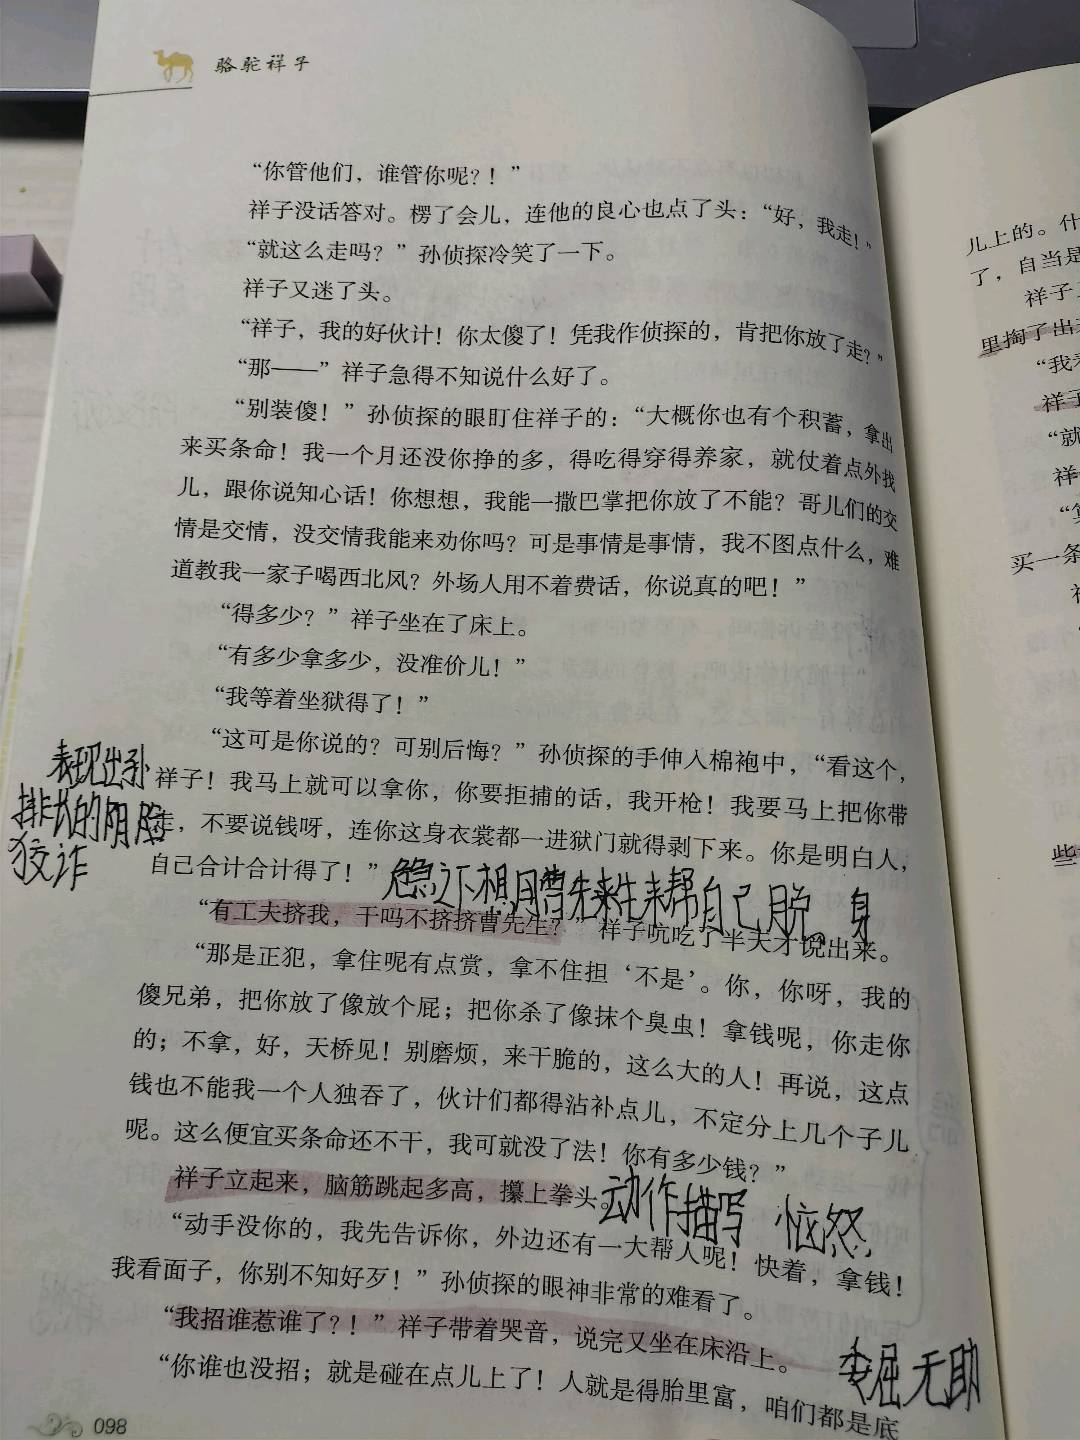 骆驼祥子
“你管他们，谁管你呢？！”
祥子没话答对。楞了会儿，连他的良心也点了头：“好，我走！”
“就这么走吗？”孙侦探冷笑了一下。
祥子又迷了头。
“祥子，我的好伙计！你太傻了！凭我作侦探的，肯把你放了走？”
“那——”祥子急得不知说什么好了。
“别装傻！”孙侦探的眼盯住祥子的：“大概你也有个积蓄，拿出
来买条命！我一个月还没你挣的多，得吃得穿得养家，就仗着点外找
儿，跟你说知心话！你想想，我能一撒巴掌把你放了不能？哥儿们的交
情是交情，没交情我能来劝你吗？可是事情是事情，我不图点什么，难
道教我一家子喝西北风？外场人用不着费话，你说真的吧！”
“得多少？”祥子坐在了床上。
“有多少拿多少，没准价儿！”
“我等着坐狱得了！”
“这可是你说的？可别后悔？”孙侦探的手伸入棉袍中，“看这个，
祥子！我马上就可以拿你，你要拒捕的话，我开枪！我要马上把你带
走，不要说钱呀，连你这身衣裳都一进狱门就得剥下来。你是明白人，
自己合计合计得了！”
表现出孙
排长的阴险
狡诈
急之下想用曹先生来帮自己脱身
“有工夫挤我，干吗不挤挤曹先生？”祥子吭吃了半天才说出来。
“那是正犯，拿住呢有点赏，拿不住担‘不是’。你，你呀，我的
傻兄弟，把你放了像放个屁；把你杀了像抹个臭虫！拿钱呢，你走你
的；不拿，好，天桥见！别磨烦，来干脆的，这么大的人！再说，这点
钱也不能我一个人独吞了，伙计们都得沾补点儿，不定分上几个子儿
呢。这么便宜买条命还不干，我可就没了法！你有多少钱？”
祥子立起来，脑筋跳起多高，攥上拳头。
动作描写 恼怒
“动手没你的，我先告诉你，外边还有一大帮人呢！快着，拿钱！
我看面子，你别不知好歹！”孙侦探的眼神非常的难看了。
“我招谁惹谁了？！”祥子带着哭音，说完又坐在床沿上。
委屈无助
“你谁也没招；就是碰在点儿上了！人就是得胎里富，咱们都是底
098
儿上的。什
了，自当是
祥子
里掏了出
“我
祥子
“就
祥
买一条
些